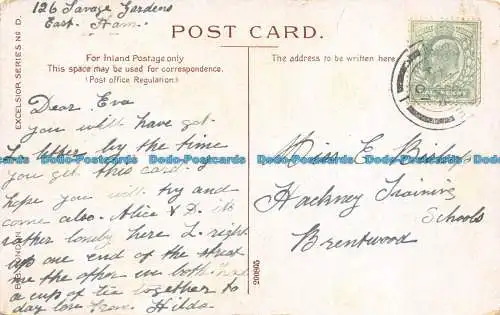 126 Savage Gardens
East Ham.
POST CARD.
For Inland Postage only
This space may be used for correspondence.
(Post office Regulation.)
The address to be written here
EXCELSIOR SERIES No D.
Dear Eva
you will have got
letter by the time
you get this card. I
hope you will try and
come also. Alice & D. its
rather lonely here I right
up one end of the street
me the other we both had
a cup of tea together to
day love from Hilda
Miss E
Hackney Training
Schools
Brentwood
200805
Dodo-Postcards Dodo-Postcards Dodo-Postcards Dodo-Postcards
Dodo-Postcards Dodo-Postcards Dodo-Postcards Dodo-Postcards
Dodo-Postcards Dodo-Postcards Dodo-Postcards Dodo-Postcards